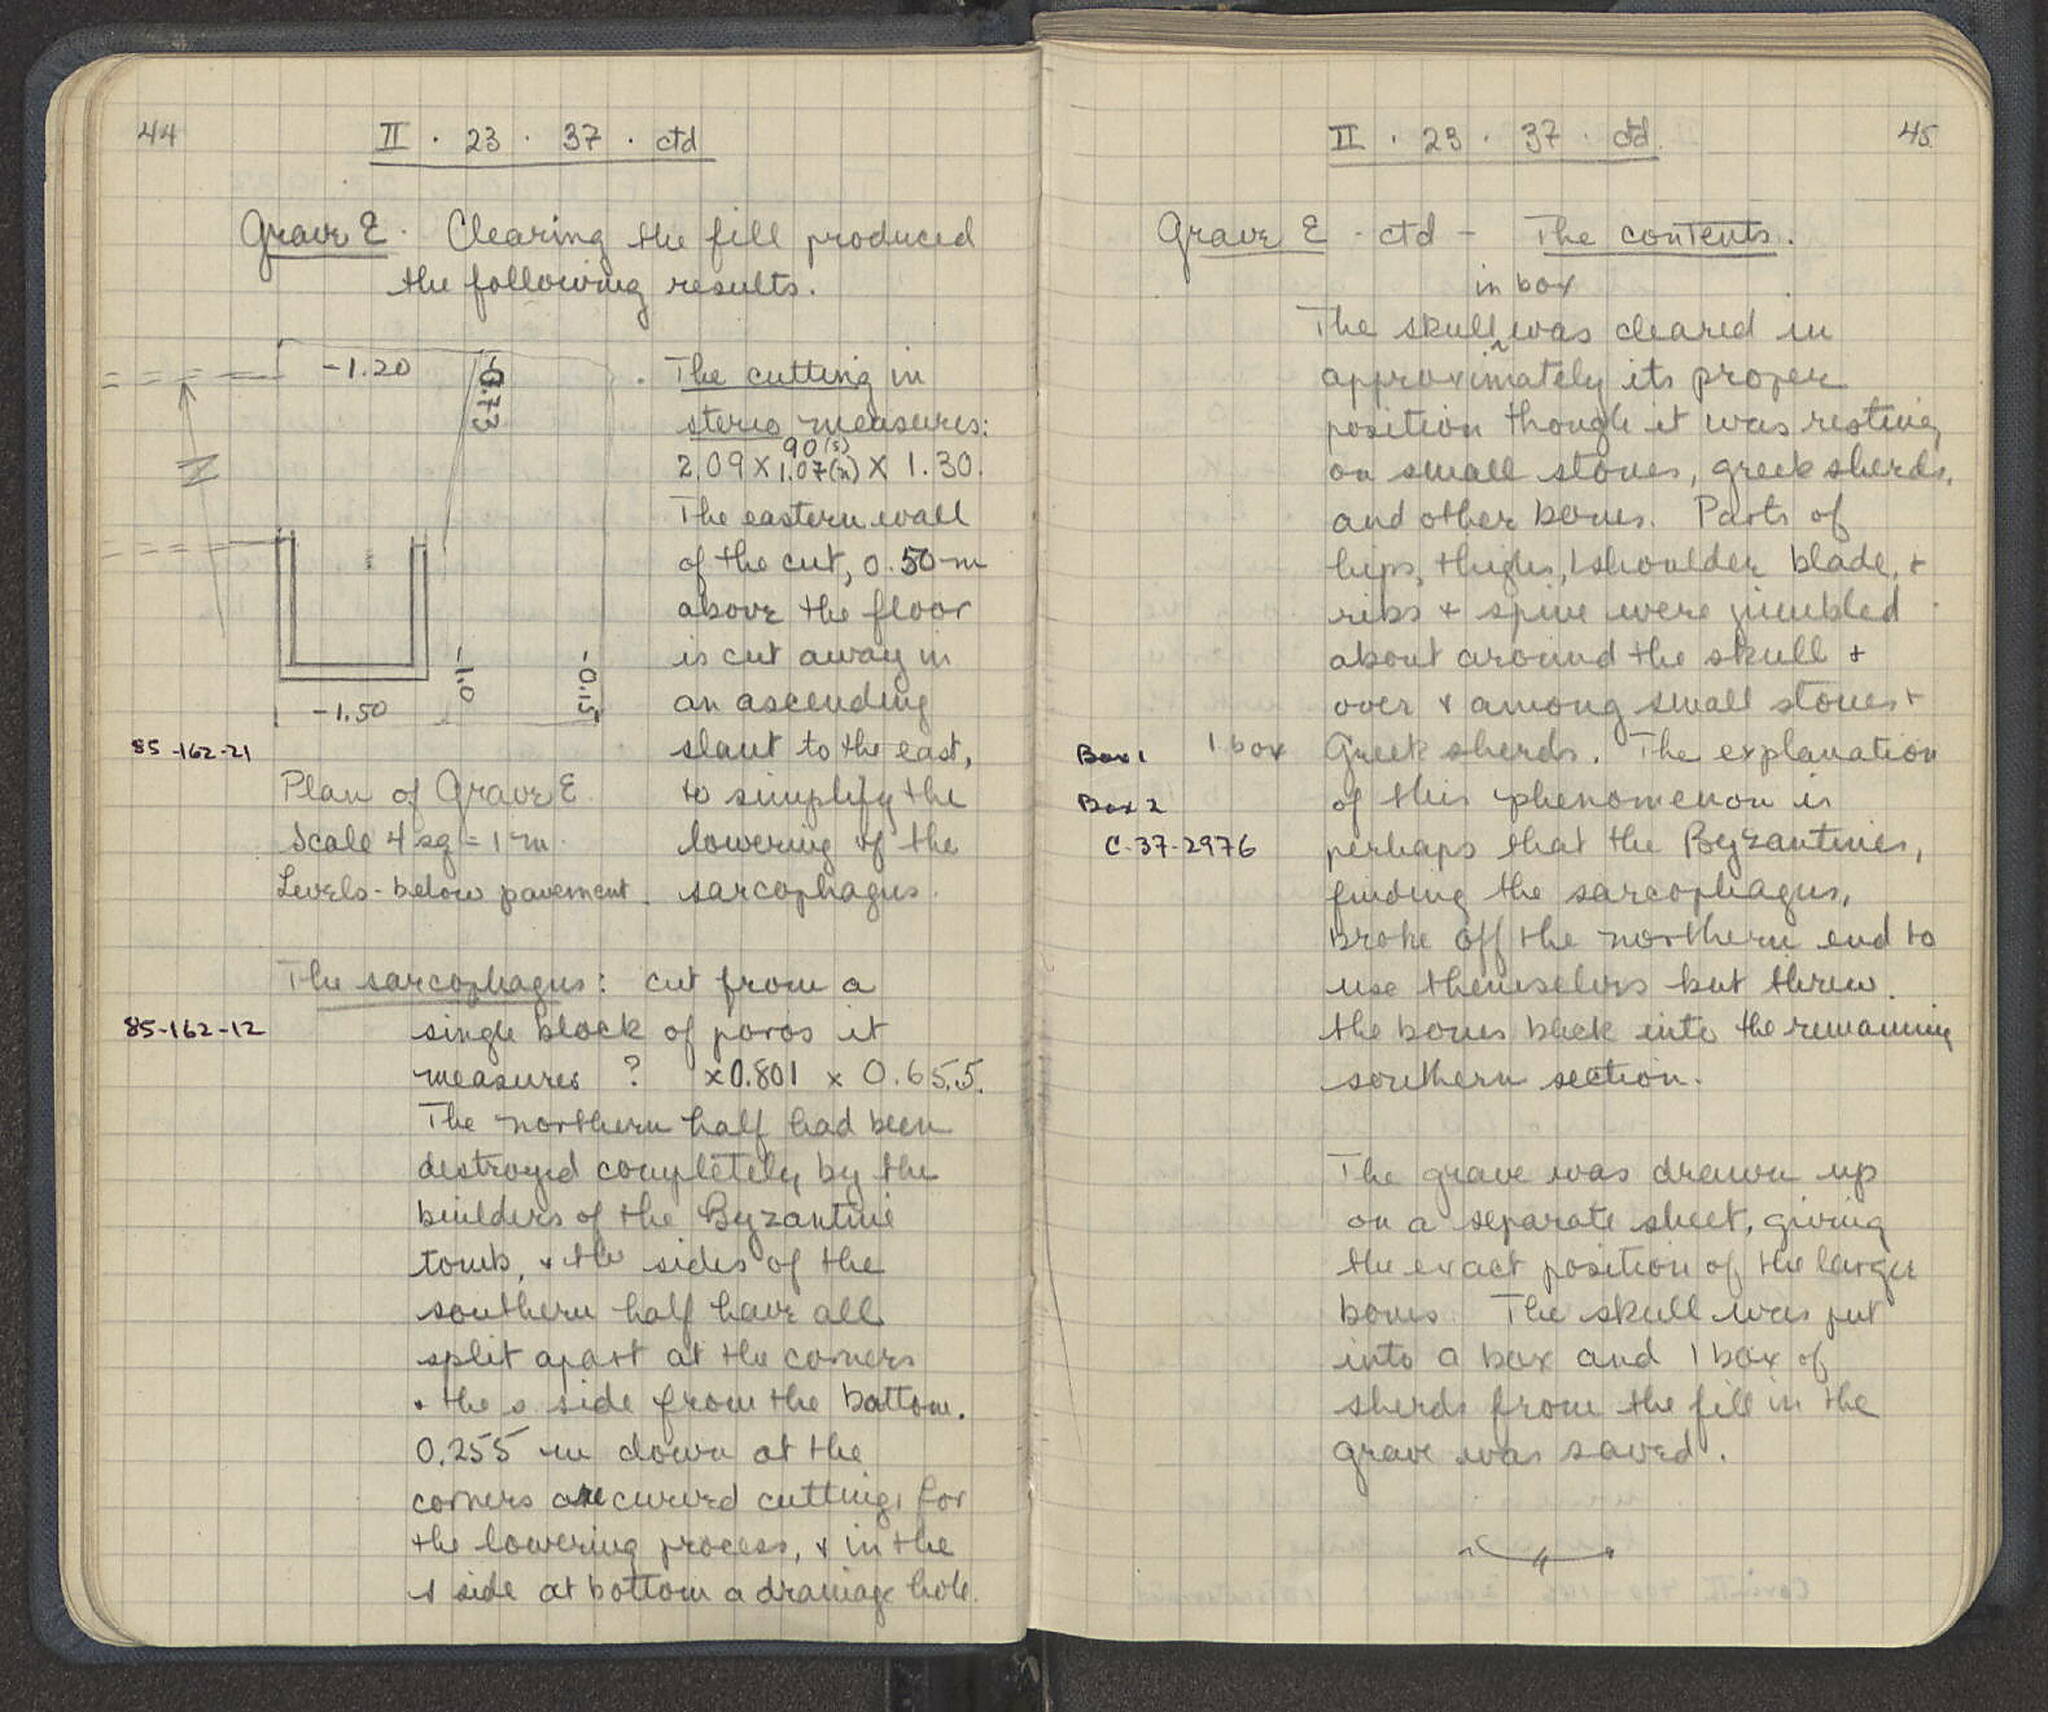 44
II · 23 · 37 · ctd
Grave E. Clearing the fill produced
the following results.
-1.20
-0.73
N
-1.0
-0.15
-1.50
85-162-21
Plan of Grave E
Scale 4 sq = 1 m.
Levels - below pavement.
The cutting in
stereo measures:
90(s)
2.09 x 1.07(n) x 1.30.
The eastern wall
of the cut, 0.50 m
above the floor
is cut away in
an ascending
slant to the east,
to simplify the
lowering of the
sarcophagus.
The sarcophagus: cut from a
85-162-12
single block of poros it
measures ? x 0.801 x 0.655.
The northern half had been
destroyed completely by the
builders of the Byzantine
tomb, + the sides of the
southern half have all
split apart at the corners
+ the s side from the bottom.
0.255 m down at the
corners are curved cuttings for
the lowering process, + in the
s side at bottom a drainage hole.
45
II · 23 · 37 · ctd.
Grave E - ctd - The contents.
in box
The skull ^ was cleared in
approximately its proper
position though it was resting
on small stones, greek sherds,
and other bones. Parts of
hips, thighs, 1 shoulder blade, +
ribs + spine were jumbled
about around the skull +
over + among small stones +
Box 1 1 box Greek sherds. The explanation
Box 2 of this phenomenon is
C-37-2976 perhaps that the Byzantines,
finding the sarcophagus,
broke off the northern end to
use themselves but threw
the bones back into the remaining
southern section.
The grave was drawn up
on a separate sheet, giving
the exact position of the larger
bones. The skull was put
into a box and 1 box of
sherds from the fill in the
grave was saved.